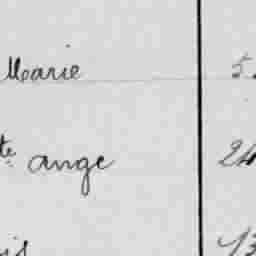 Marie 5
te ange 24
is 13